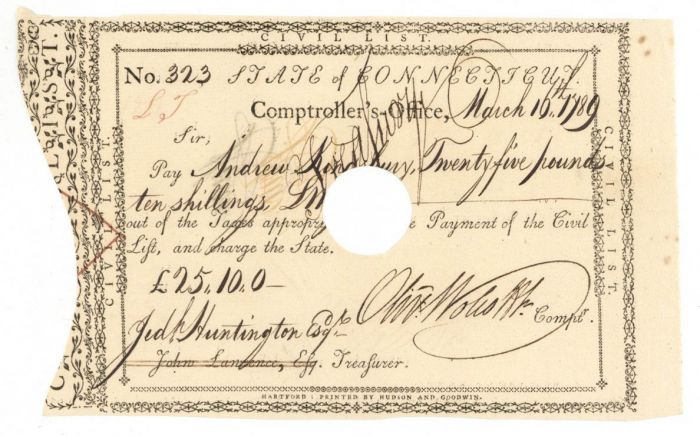 CIVIL LIST.
No. 323 STATE of CONNECTICUT.
Comptroller's-Office, March 16th 1789
Sir;
Pay Andrew Kingsbury, Twenty five pounds
ten shillings
out of the Taxes appropr Payment of the Civil
List, and charge the State.
£25.10.0—
Oliv Wolcott Jr. Comptr.
Jedh Huntington Esqr
John Lawrence, Esq. Treasurer.
HARTFORD: PRINTED BY HUDSON AND GOODWIN.
CIVIL LIST.
CIVIL LIST.